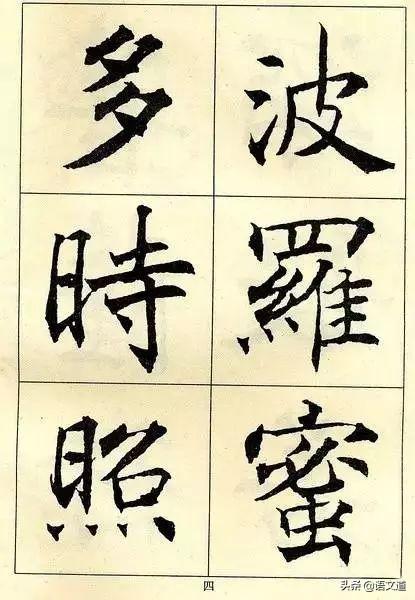 波羅蜜
多時照
四
头条 @语文道